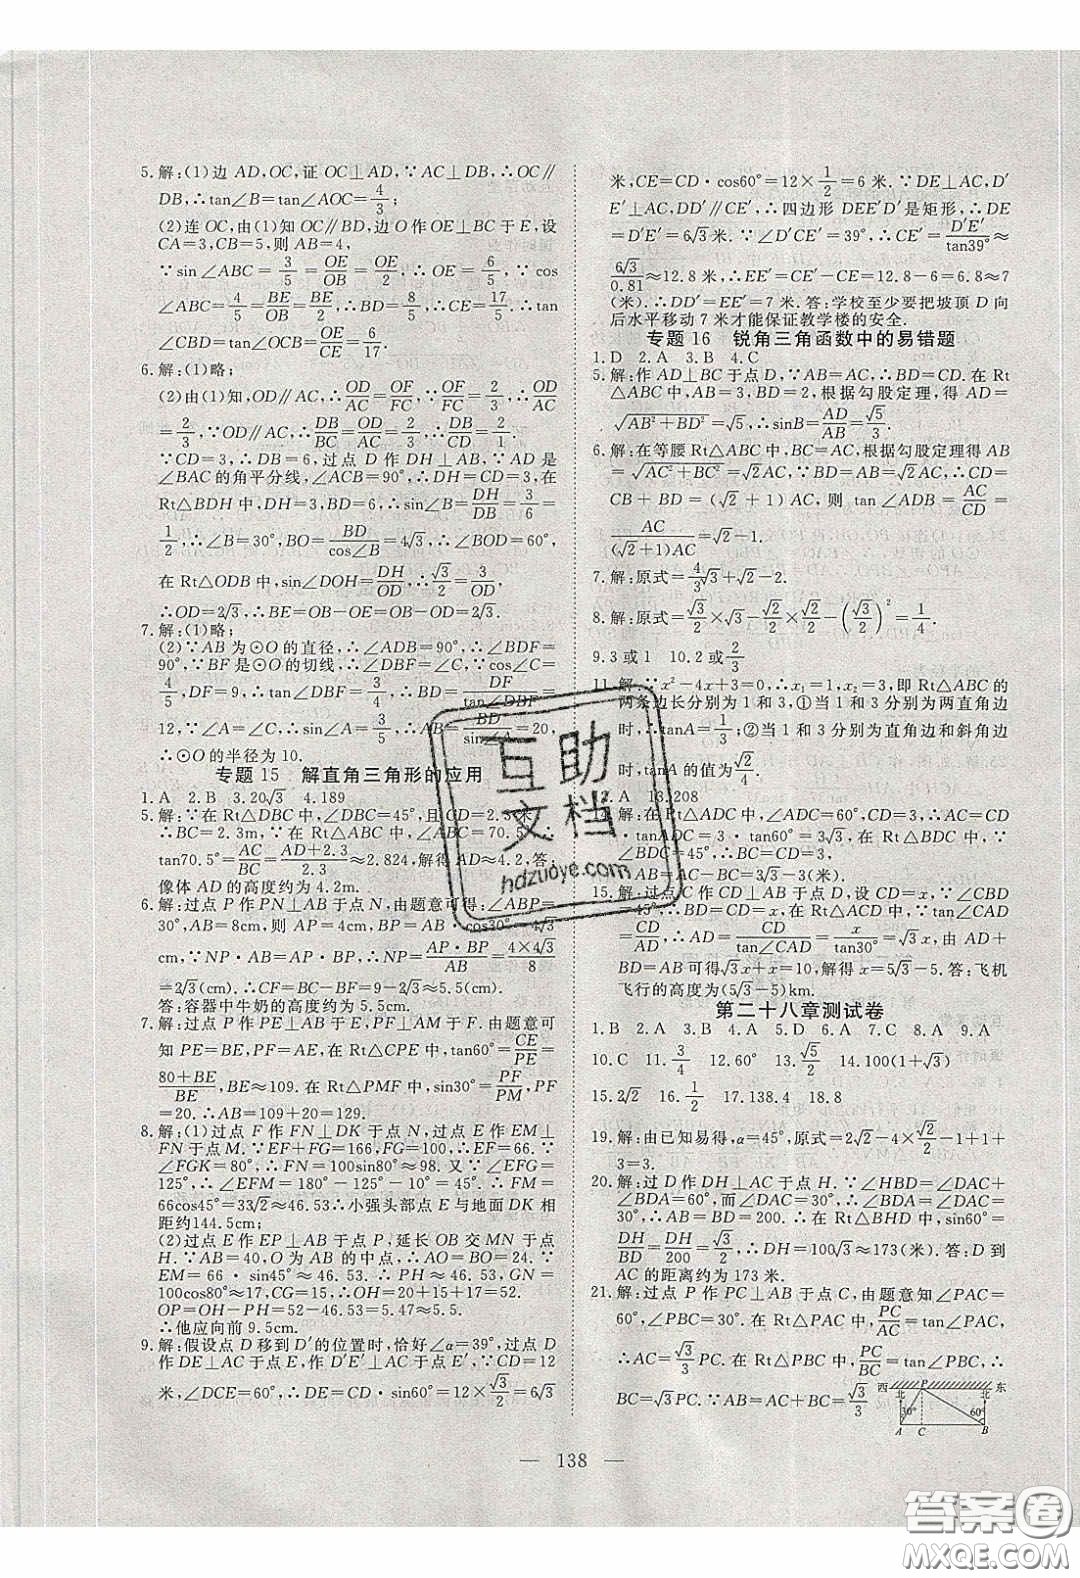 5.解:(1)边 AD,OC,证 OC⊥AD,∵AC⊥DB,∴OC∥
DB,∴tan∠B=tan∠AOC=4/3;
(2)连 OC,由(1)知 OC∥BD,过 O 作 OE⊥BC 于 E,设
CA=3,CB=5,则 AB=4,
∵sin∠ABC=3/5=OE/OB=OE/2,∴OE=6/5,∵cos
∠ABC=4/5=BE/OB=BE/2,∴BD=8/5,∴CE=17/5,∴tan
∠CBD=tan∠OCB=OE/CE=6/17.
6.解:(1)略;
(2)由(1)知,OD∥AC,∴OD/AC=OF/FC,∵OF/FC=2/1,∴OD/AC=
2/3,∵OD∥AC,∴DB/BC=OD/AC=2/3,∴DB/CD=2/1.
∵CD=3,∴DB=6,过点 D 作 DH⊥AB,∵AD 是
∠BAC 的角平分线,∠ACB=90°,∴DH=CD=3,在
Rt△BDH 中,DH=3,BD=6,∴sin∠B=DH/DB=3/6=
1/2,∴∠B=30°,BO=BD/cos∠B=4√3,∴∠BOD=60°,
在 Rt△ODB 中,sin∠DOH=DH/OD,∴√3/2=3/OD,
∴OD=2√3,∴BE=OB-OE=OB-OD=2√3.
7.解:(1)略;
(2)∵AB 为⊙O 的直径,∴∠ADB=90°,∴∠BDF=
90°,∵BF 是⊙O 的切线,∴∠DBF=∠C,∵cos∠C=
4/5,DF=9,∴tan∠C=3/4,∴BD=DF/tan∠DBF=
12,∵∠A=∠C,∴sin∠A=3/5,∴AB=BD/sin∠A=20,
∴⊙O 的半径为 10.
专题 15 解直角三角形的应用
1.A 2.B 3.20√3 4.189
5.解:∵在 Rt△DBC 中,∠DBC=45°,且 CD=2.3 米,
∴BC=2.3m,∵在 Rt△ABC 中,∠ABC=70.5°,∴
tan70.5°=AC/BC=AD+2.3/2.3≈2.824,解得 AD≈4.2,答:
像体 AD 的高度约为 4.2m.
6.解:过点 P 作 PN⊥AB 于点 N,由题意可得:∠ABP=
30°,AB=8cm,则 AP=4cm,BP=AB·cos30°=4√3
cm,∵NP·AB=AP·BP,∴NP=AP·BP/AB=4×4√3/8
=2√3(cm),∴CF=BC-BF=9-2√3≈5.5(cm).
答:容器中牛奶的高度约为 5.5cm.
7.解:过点 P 作 PE⊥AB 于 E,PF⊥AM 于 F.由题意可
知 PE=BE,设 BE=PE,在 Rt△CPE 中,tan60°=CE/PE=
80+BE/BE,BE≈109.在 Rt△PMF 中,sin30°=PF/PM,PF
=20.∴AB=109+20=129.
8.解:(1)过点 F 作 FN⊥DK 于点 N,过点 E 作 EM⊥
FN 于点 M.∵EF+FG=166,FG=100,∴EF=66.∵
∠FGK=80°,∴FN=100sin80°≈98.又∵∠EFG=
125°,∴∠EFM=180°-125°-10°=45°.∴FM=
66cos45°=33√2≈46.53∴小强头部点 E 与地面 DK 相
距约144.5cm;
(2)过点 E 作 EP⊥AB 于点 P,延长 OB 交 MN 于点 H.
∵AB=48,O 为 AB 的中点,∴AO=BO=24.∵
EM=66·sin45°≈46.53.∴PH≈46.53,GN=
100cos80°≈17,CG=15,∴OH=20+15+17=52.
OP=OH-PH=52-46.53=5.47.
∴他应向前 9.5cm.
9.解:假设点 D 移到 D′的位置时,恰好∠α=39°,过点 D
作 DE⊥AC 于点 E,作 D′E′⊥AC 于点 E′,∵CD=12
米,∠DCE=60°,∴DE=CD·sin60°=12×√3/2=6√3
米,CE=CD·cos60°=12×1/2=6 米.∵DE⊥AC,D′
E′⊥AC,DD′∥CE′,∴四边形 DEE′D′是矩形,∴DE=
D′E′=6√3米.∵∠D′CE′=39°,∴CE′=D′E′/tan39°≈
6√3/0.81≈12.8 米,∴EE′=CE′-CE=12.8-6=6.8≈7
(米).∴DD′=EE′=7 米.答:学校至少要把坡顶 D 向
后水平移动 7 米才能保证教学楼的安全.
专题 16 锐角三角函数中的易错题
1.D 2.A 3.B 4.C
5.解:作 AD⊥BC 于点 D,∵AB=AC,∴BD=CD.在 Rt
△ABC 中,AB=3,BD=2,根据勾股定理,得 AD=
√AB²+BD²=√5,∴sinB=AD/AB=√5/3.
6.解:在等腰 Rt△ABC 中,BC=AC,根据勾股定理得 AB
=√AC²+BC²=√2AC,∵AB=BD,∴BD=√2AC,∴CD=
CB+BD=(√2+1)AC,则 tan∠ADB=AC/CD=
AC/(√2+1)AC=√2-1.
7.解:原式=4/3√3+√2-2.
8.解:原式=√3/2×√3-√2/2×√2/2-(√3/2)²=1/4.
9.3 或 1 10.2 或2/3
11.解:∵x²-4x+3=0,∴x₁=1,x₂=3,即 Rt△ABC 的
两条边长分别为 1 和 3,①当 1 和 3 分别为两直角边
时,∴tanA=1/3;②当 1 和 3 分别为直角边和斜角边
时,tanA 的值为√2/4.
12.A 13.208
14.解:在 Rt△ADC 中,∠ADC=60°,CD=3,∵tan
∠ADC=AC/CD,∴AC=3·tan60°=3√3,在 Rt△BDC 中,
∠BDC=45°,∴AB=AC-BC=3√3-3(米).
15.解:过点 C 作 CD⊥AB 于点 D,设 CD=x,∵∠CBD
=45°,∴BD=CD=x,在 Rt△ACD 中,∵tan∠CAD
=CD/AD,∴AD=CD/tan∠CAD=x/tan30°=√3x,由 AD+
BD=AB 可得√3x+x=10,解得 x=5√3-5,答:飞机
飞行的高度为(5√3-5)km.
第二十八章测试卷
1.B 2.A 3.B 4.A 5.D 6.A 7.C 8.A 9.A
10.C 11.3/4 12.60° 13.√5/2 14.100(1+√3)
15.2√2 16.1/2 17.138.4 18.8
19.解:由已知易得,α=45°,原式=2√2-4×√2/2-1+1
+3=3.
20.解:过 D 作 DH⊥AC 于点 H.∵∠HBD=∠DAC+
∠BDA=60°,而∠DAC=30°,∴∠BDA=∠DAC=
30°,∴AB=BD=200.∴在 Rt△BHD 中,sin60°=
DH/BD=DH/200=√3/2,∴DH=100√3≈173(米).答:D 到
AC 的距离约为 173 米.
21.解:过点 P 作 PC⊥AB 于点 C,由题意知∠PAC=
60°,∠PBC=30°.在 Rt△PAC 中,PC/AC=tan∠PAC,
∴AC=√3/3PC.在 Rt△PBC 中,PC/BC=tan∠PBC,∴
BC=√3PC.∵AB=AC+BC=√3/3
西 北 P 北 东
30° 60°
A C B
— 138 —
互助
文档
hdzuoye.com
答案圈
MXQE.COM